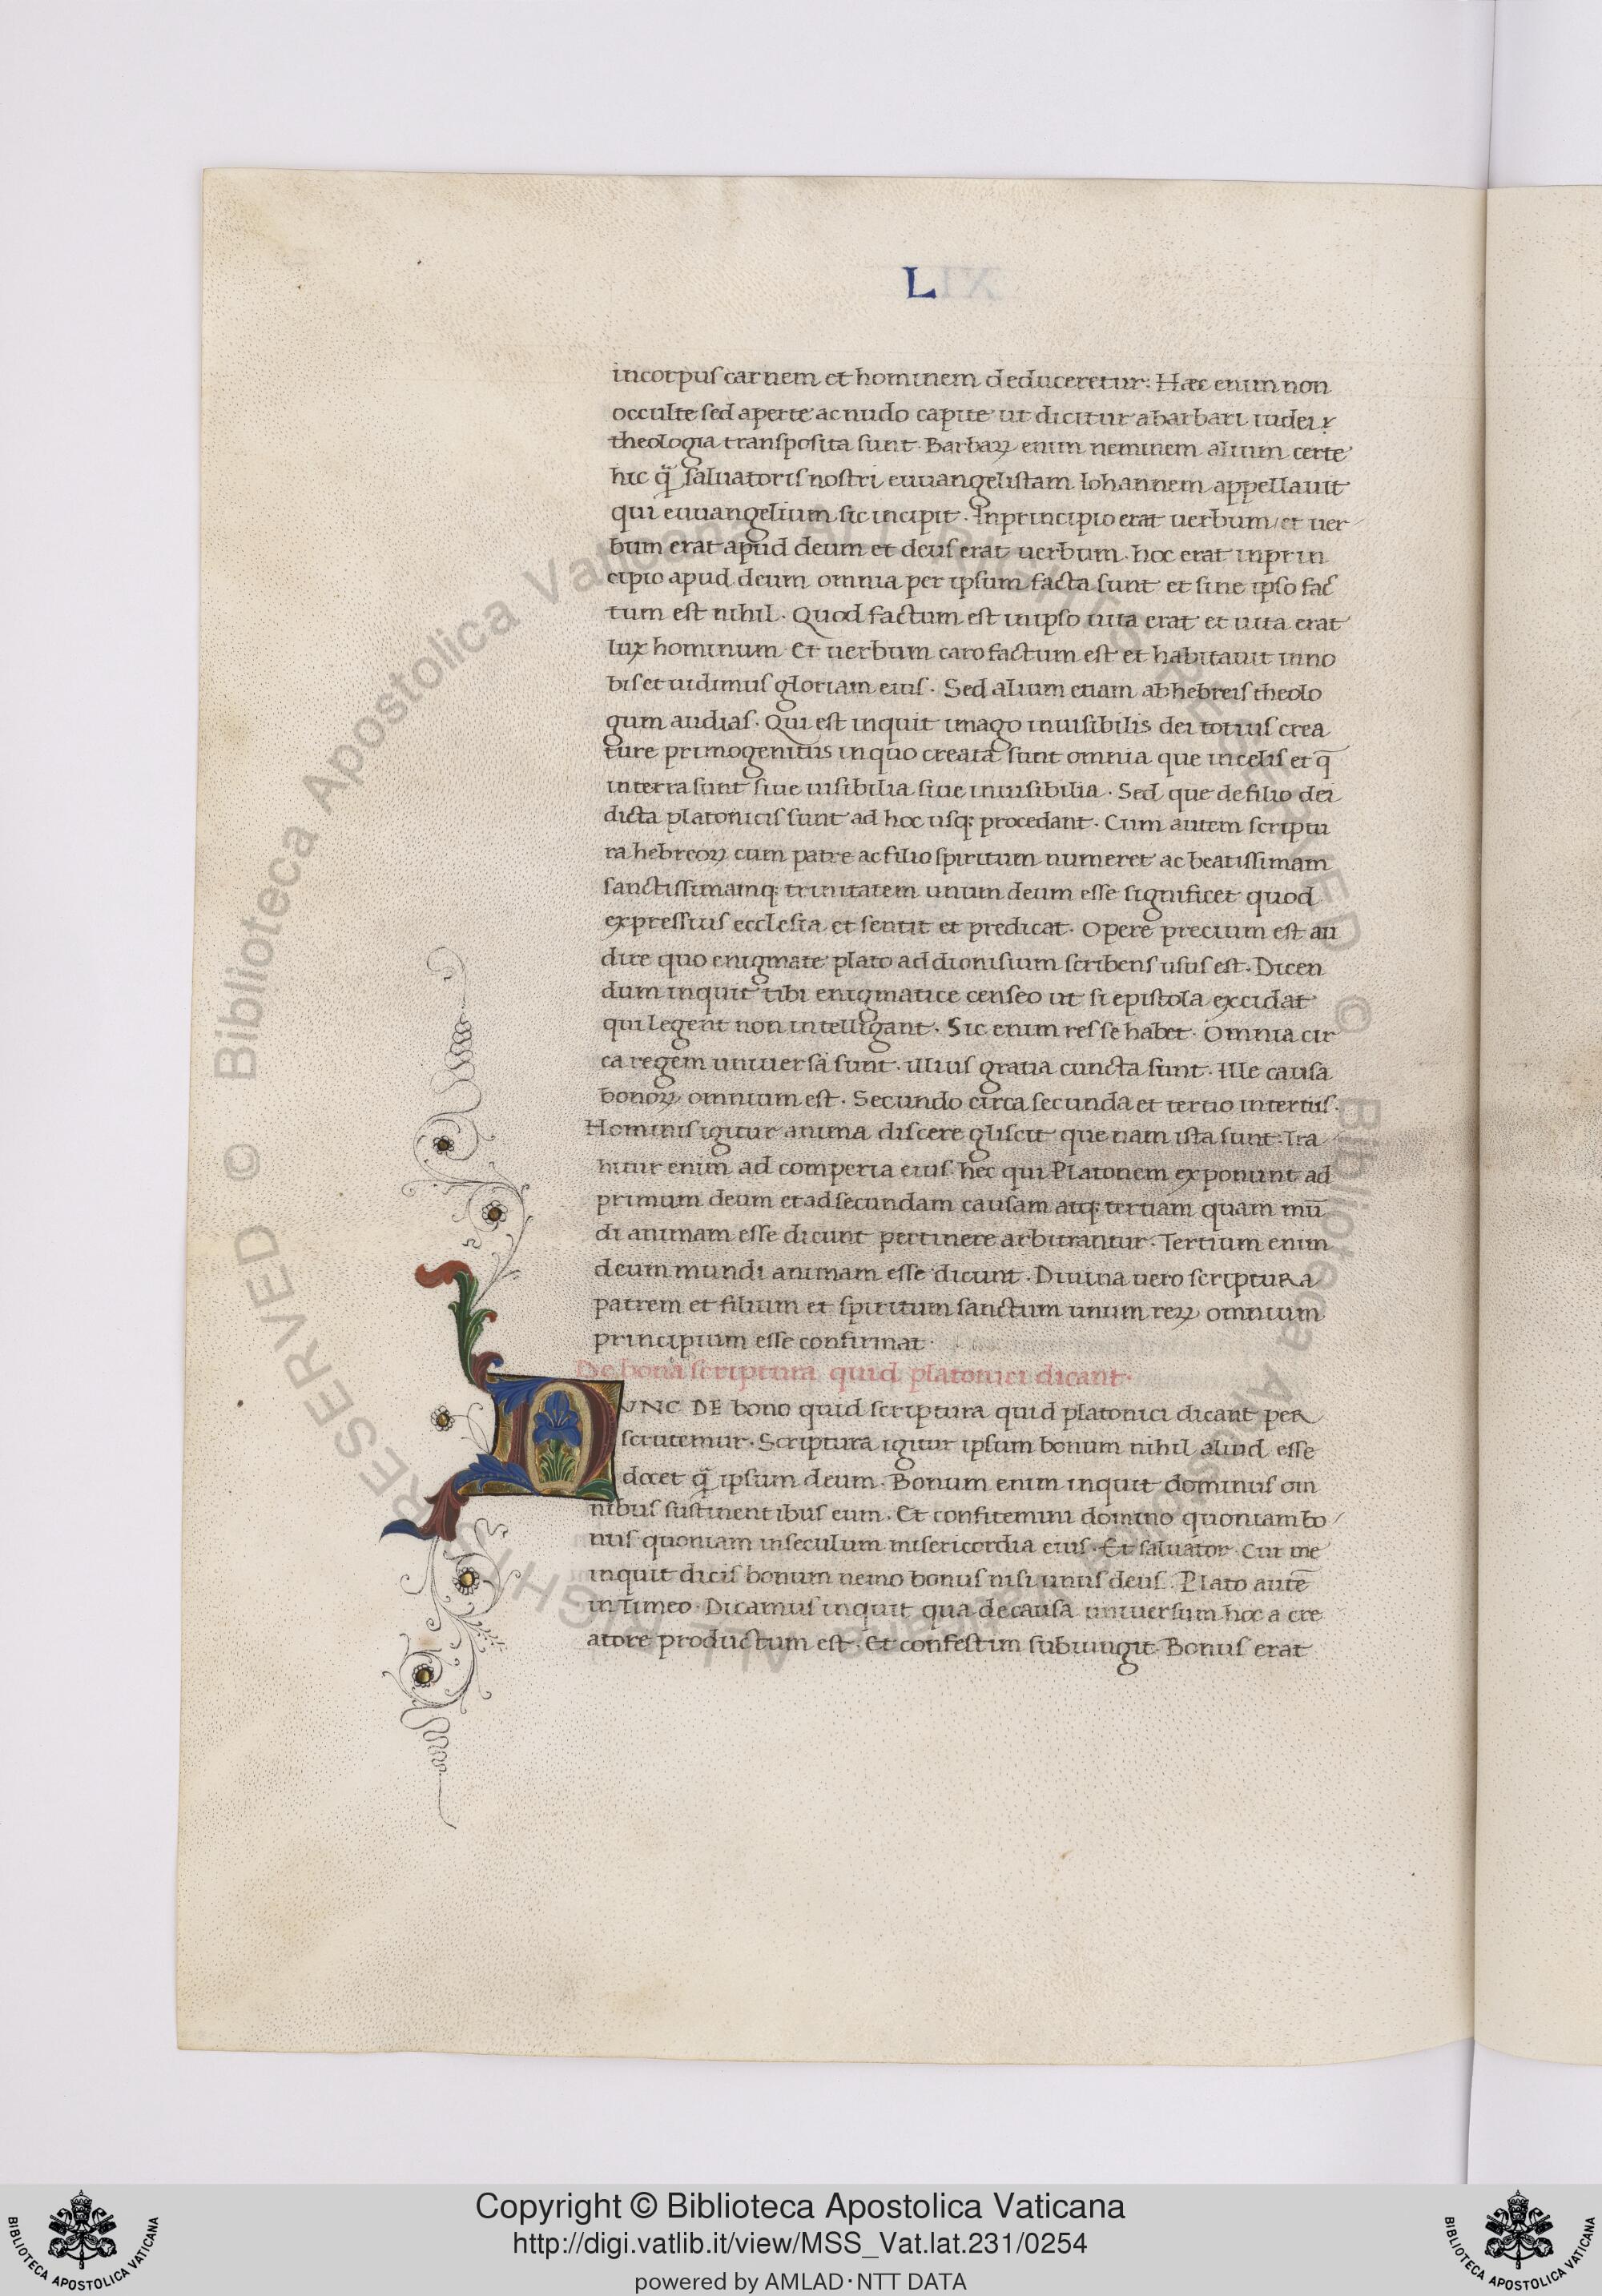 L
incorpus carnem et hominem deduceretur: Hæc enim non
occulte sed aperte ac nudo capite ut dicitur abarbari iudei
theologia transposita sunt. Barbaꝝ enim neminem alium certe
hic q̃ saluatoris nostri euuangelistam Iohannem appellauit
qui euuangelium sic incipit. Inprincipio erat uerbum/et uer
bum erat apud deum et deus erat uerbum. hoc erat inprin
cipio apud deum omnia per ipsum facta sunt et sine ipso fac
tum est nihil. Quod factum est inipso uita erat et uita erat
lux hominum Et uerbum caro factum est et habitauit inno
bis et uidimus gloriam eius. Sed alium etiam ab hebreis theolo
gum audias. Qui est inquit imago inuisibilis dei totius crea
ture primogenitus inquo creata sunt omnia que incelis et q̄
interra sunt siue uisibilia siue inuisibilia. Sed que defilio dei
dicta platonicis sunt ad hoc usq; procedant. Cum autem scriptu
ra hebreoꝝ cum patre ac filio spiritum numeret ac beatissimam
sanctissimamq; trinitatem unum deum esse significet quod
expressius ecclesia et sentit et predicat. Opere precium est au
dire quo enigmate plato ad dionisium scribens usus est. Dicen
dum inquit tibi enigmatice censeo ut si epistola excidat
qui legent non intelligant. Sic enim res se habet. Omnia cir
ca regem uniuersa sunt. illius gratia cuncta sunt. Ille causa
bonoꝝ omnium est. Secundo circa secunda et tertio intertiis.
Hominis igitur anima discere gliscit que nam ista sunt. Tra
hitur enim ad comperta eius hec qui Platonem exponunt ad
primum deum et ad secundam causam atq; tertiam quam mū
di animam esse dicunt pertinere arbitrantur. Tertium enim
deum mundi animam esse dicunt. Diuina uero scriptura
patrem et filium et spiritum sanctum unum reꝝ omnium
principium esse confirmat.
De bona scriptura quid platonici dicant.
NVNC DE bono quid scriptura quid platonici dicant per
scrutemur. Scriptura igitur ipsum bonum nihil aliud esse
docet q̃ ipsum deum. Bonum enim inquit dominus om
nibus sustinentibus eum. Et confitemini domino quoniam bo
nus quoniam inseculum misericordia eius. Et saluator. Cur me
inquit dicis bonum nemo bonus nisi unus deus. Plato autē
in Timeo. Dicamus inquit qua decausa uniuersum hoc a cre
atore productum est. Et confestim subiungit. Bonus erat
© Biblioteca Apostolica Vaticana ALL RIGHTS RESERVED
BIBLIOTECA APOSTOLICA VATICANA
Copyright © Biblioteca Apostolica Vaticana
http://digi.vatlib.it/view/MSS_Vat.lat.231/0254
powered by AMLAD·NTT DATA
BIBLIOTECA APOSTOLICA VATICANA